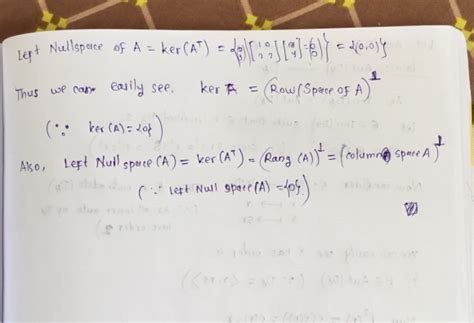 Left Nullspace of A = ker(Aᵀ) = {(x y) | [1 0 2 2] [x y] = (0 0)} = {(0,0)}
Thus we can easily see. ker A = (Row Space of A)^⊥
(∵ ker(A) = {0})
Also, Left Null space (A) = ker(Aᵀ) = (Rang(A))^⊥ = (column space A)^⊥
(∵ left Null space (A) = {0}.)